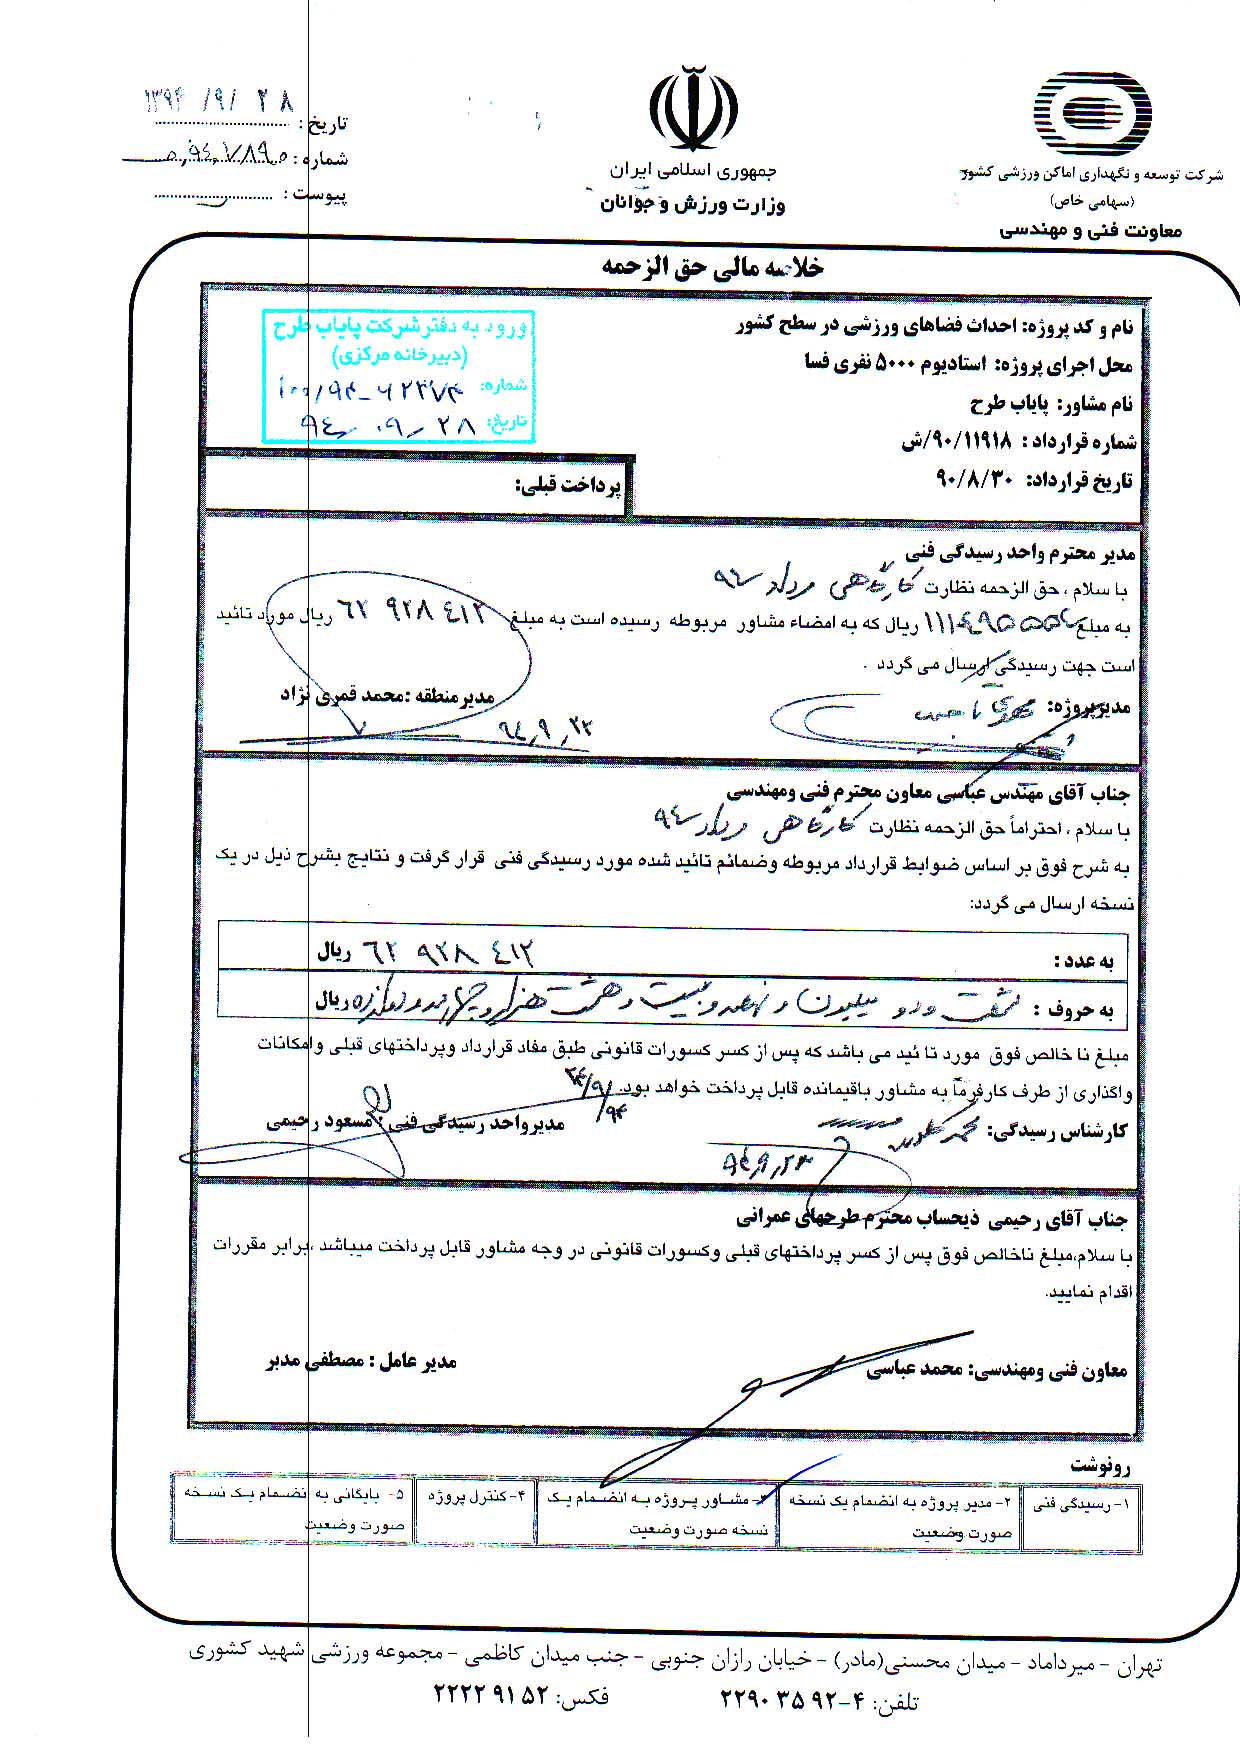 شرکت توسعه و نگهداری اماکن ورزشی کشور
(سهامی خاص)
معاونت فنی و مهندسی
جمهوری اسلامی ایران
وزارت ورزش و جوانان
تاریخ : ۱۳۹۴/۹/۲۸
شماره :
پیوست :
خلاصه مالی حق الزحمه
نام و کد پروژه: احداث فضاهای ورزشی در سطح کشور
محل اجرای پروژه: استادیوم ۵۰۰۰ نفری فسا
نام مشاور: پایاب طرح
شماره قرارداد : ۹۰/۱۱۹۱۸/ش
تاریخ قرارداد: ۹۰/۸/۳۰
ورود به دفتر شرکت پایاب طرح
(دبیرخانه مرکزی)
شماره: ۱۰۰/۹۴-۶۲۳۷۴
تاریخ: ۹۴/۰۹/۲۸
پرداخت قبلی:
مدیر محترم واحد رسیدگی فنی
با سلام ، حق الزحمه نظارت کارگاهی مرداد ۹۴
به مبلغ ریال که به امضاء مشاور مربوطه رسیده است به مبلغ ۶۲ ۹۲۸ ۴۱۲ ریال مورد تائید
است جهت رسیدگی ارسال می گردد .
مدیرپروژه:
مدیرمنطقه :محمد قمری نژاد
۹۴,۹,۲۲
جناب آقای مهندس عباسی معاون محترم فنی ومهندسی
با سلام ، احتراماً حق الزحمه نظارت کارگاهی مرداد ۹۴
به شرح فوق بر اساس ضوابط قرارداد مربوطه وضمائم تائید شده مورد رسیدگی فنی قرار گرفت و نتایج بشرح ذیل در یک
نسخه ارسال می گردد:
به عدد : ۶۲ ۹۲۸ ۴۱۲ ریال
به حروف : شصت و دو میلیون و نهصد و بیست و هشت هزار و چهارصد و دوازده ریال
مبلغ نا خالص فوق مورد تا ئید می باشد که پس از کسر کسورات قانونی طبق مفاد قرارداد وپرداختهای قبلی وامکانات
واگذاری از طرف کارفرما به مشاور باقیمانده قابل پرداخت خواهد بود. ۲۴/۹/۹۴
کارشناس رسیدگی:
مدیرواحد رسیدگی فنی : مسعود رحیمی
۹۴,۹,۲۳
جناب آقای رحیمی ذیحساب محترم طرحهای عمرانی
با سلام،مبلغ ناخالص فوق پس از کسر پرداختهای قبلی وکسورات قانونی در وجه مشاور قابل پرداخت میباشد ،برابر مقررات
اقدام نمایید.
معاون فنی ومهندسی: محمد عباسی
مدیر عامل : مصطفی مدبر
رونوشت
۱- رسیدگی فنی
۲- مدیر پروژه به انضمام یک نسخه
صورت وضعیت
۳- مشاور پروژه به انضمام یک
نسخه صورت وضعیت
۴- کنترل پروژه
۵- بایگانی به نضمام یک نسخه
صورت وضعیت
تهران - میرداماد - میدان محسنی(مادر) - خیابان رازان جنوبی - جنب میدان کاظمی - مجموعه ورزشی شهید کشوری
تلفن: ۴-۲۲۹۰۳۵۹۲ فکس: ۲۲۲۲۹۱۵۲